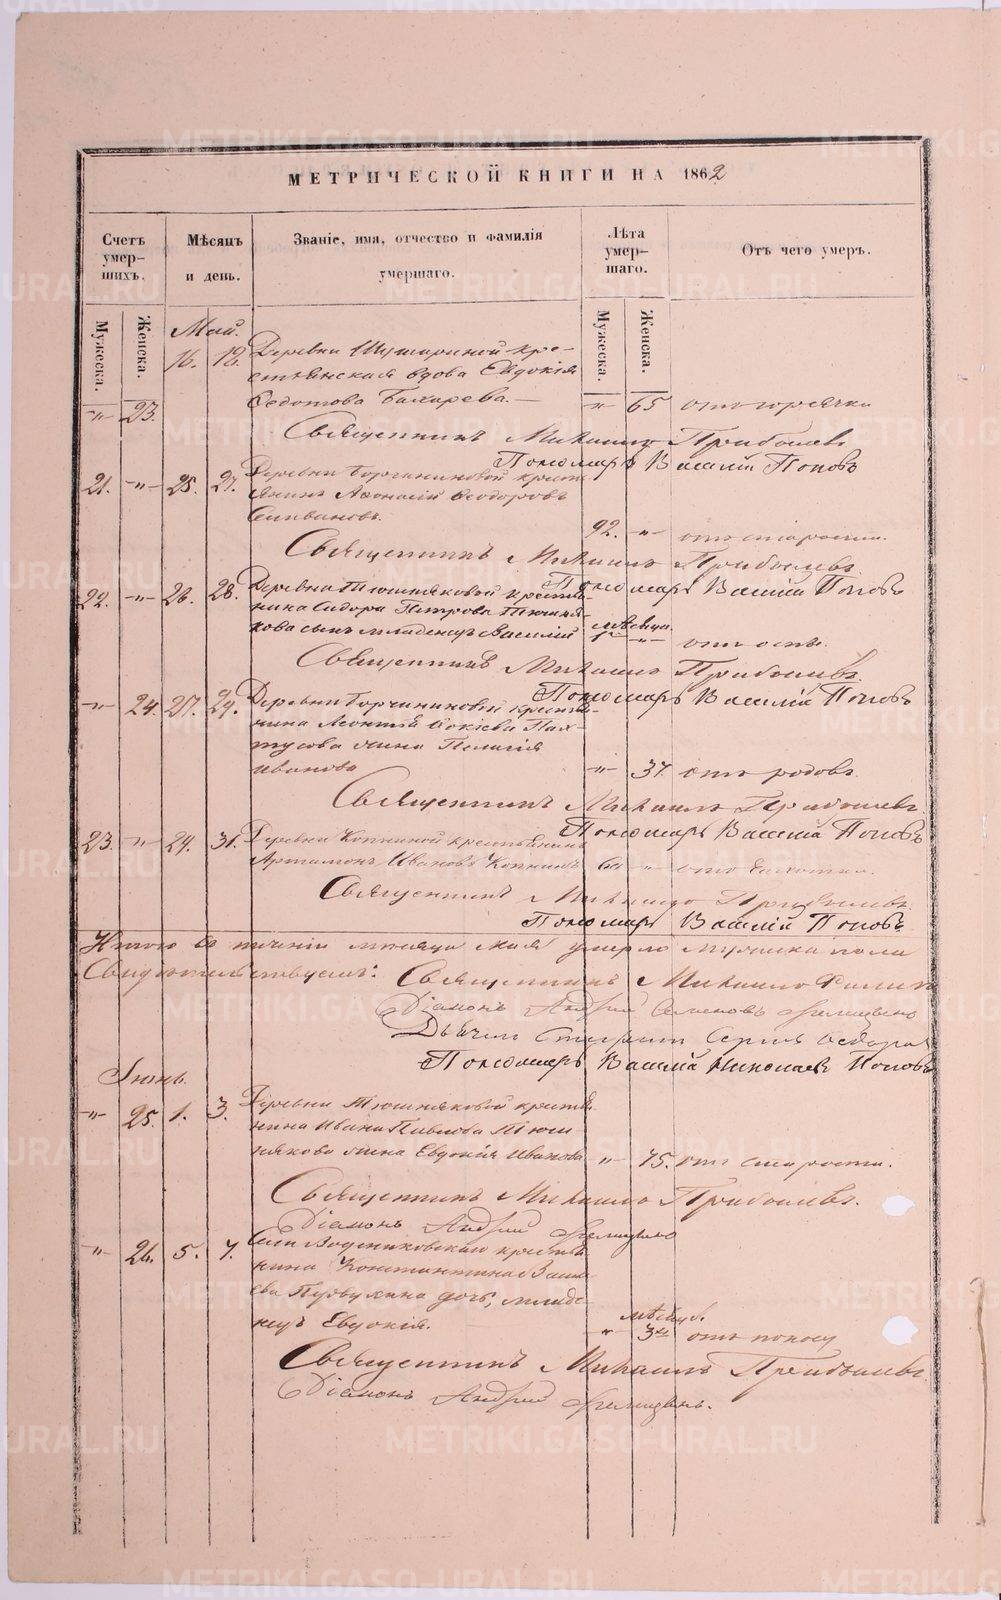 МЕТРИЧЕСКОЙ КНИГИ НА 1862
Счетъ умершихъ. Мѣсяцъ и день. Званіе, имя, отчество и фамилія умершаго. Лѣта умершаго. Отъ чего умеръ.
Мужеска. Женска. Мужеска. Женска.
Май.
16. 18. Деревни кре-
стьянская вдова Евдокія
„ 23. Ѳедотова Бахарева. „ 65 отъ горячки
Священникъ Михаилъ Прибылевъ
Пономарь Василій Поповъ
21. „ 25. 27. Деревни крестья-
янинъ Аѳонасій Ѳеодоровъ
Селивановъ. 92. „ отъ старости.
Священникъ Михаилъ Прибылевъ.
Пономарь Василій Поповъ
22. „ 26. 28. Деревни Тюшняковой крестья-
нина Сидора Петрова Тюшня-
кова сынъ младенецъ Василій мѣсяца 1 „ отъ оспы.
Священникъ Михаилъ Прибылевъ.
Пономарь Василій Поповъ
„ 24. 27. 29. Деревни крестья-
нина Леонтія Пах-
тусова жена Пелагія
Иванова „ 37. отъ родовъ.
Священникъ Михаилъ Прибылевъ.
Пономарь Василій Поповъ
23. „ 29. 31. Деревни Копниной крестьянинъ
Артамонъ Ивановъ Копнинъ „ отъ чахотки.
Священникъ Михаилъ Прибылевъ.
Пономарь Василій Поповъ
Итого въ теченіи мѣсяца мая умерло мужеска пола
Свидѣтельствуемъ: Священникъ Михаилъ
Діаконъ Андрей Семеновъ
Дьячекъ Стефанъ
Пономарь Василій Николаевъ Поповъ
Іюнь.
„ 25. 1. 3. Деревни Тюшняковой крестья-
нина Ивана Павлова Тюш-
някова жена Евдокія Иванова „ 75. отъ старости.
Священникъ Михаилъ Прибылевъ.
Діаконъ Андрей
„ 26. 5. 7. Села Водениковскаго крестья-
нина Константина Васи-
ева дочь, младе-
нецъ Евдокія. мѣсяц. „ 3 отъ поносу
Священникъ Михаилъ Прибылевъ.
Діаконъ Андрей